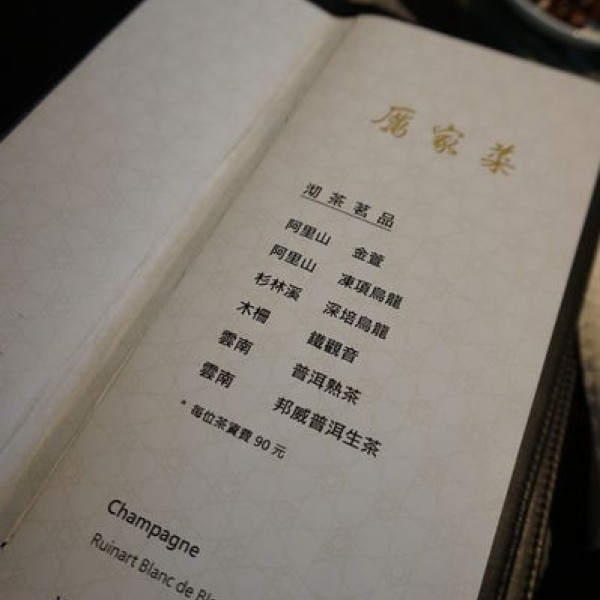 厲家菜
沏茶茗品
阿里山 金萱
阿里山 凍項烏龍
杉林溪 深培烏龍
木柵 鐵觀音
雲南 普洱熟茶
雲南 邦威普洱生茶
* 每位茶資費 90 元
Champagne
Ruinart Blanc de